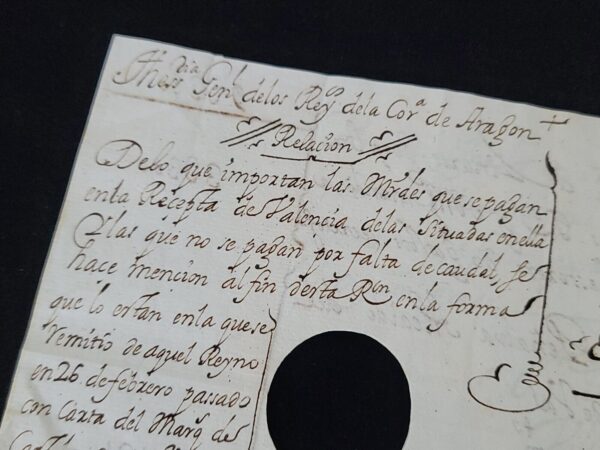 Thess.ria Gen.l de los Rey.os de la Cor.a de Aragon
Relacion
Delo que importan las Mrdes que se pagan
en la Recepta de Valencia de las Situadas en ella
Ylas que no se pagan por falta de caudal, se
hace mencion al fin desta R.on en la forma
que lo estan en la que se
remitio de aquel Reyno
en 26 de febrero passado
con Carta del Marq.s de